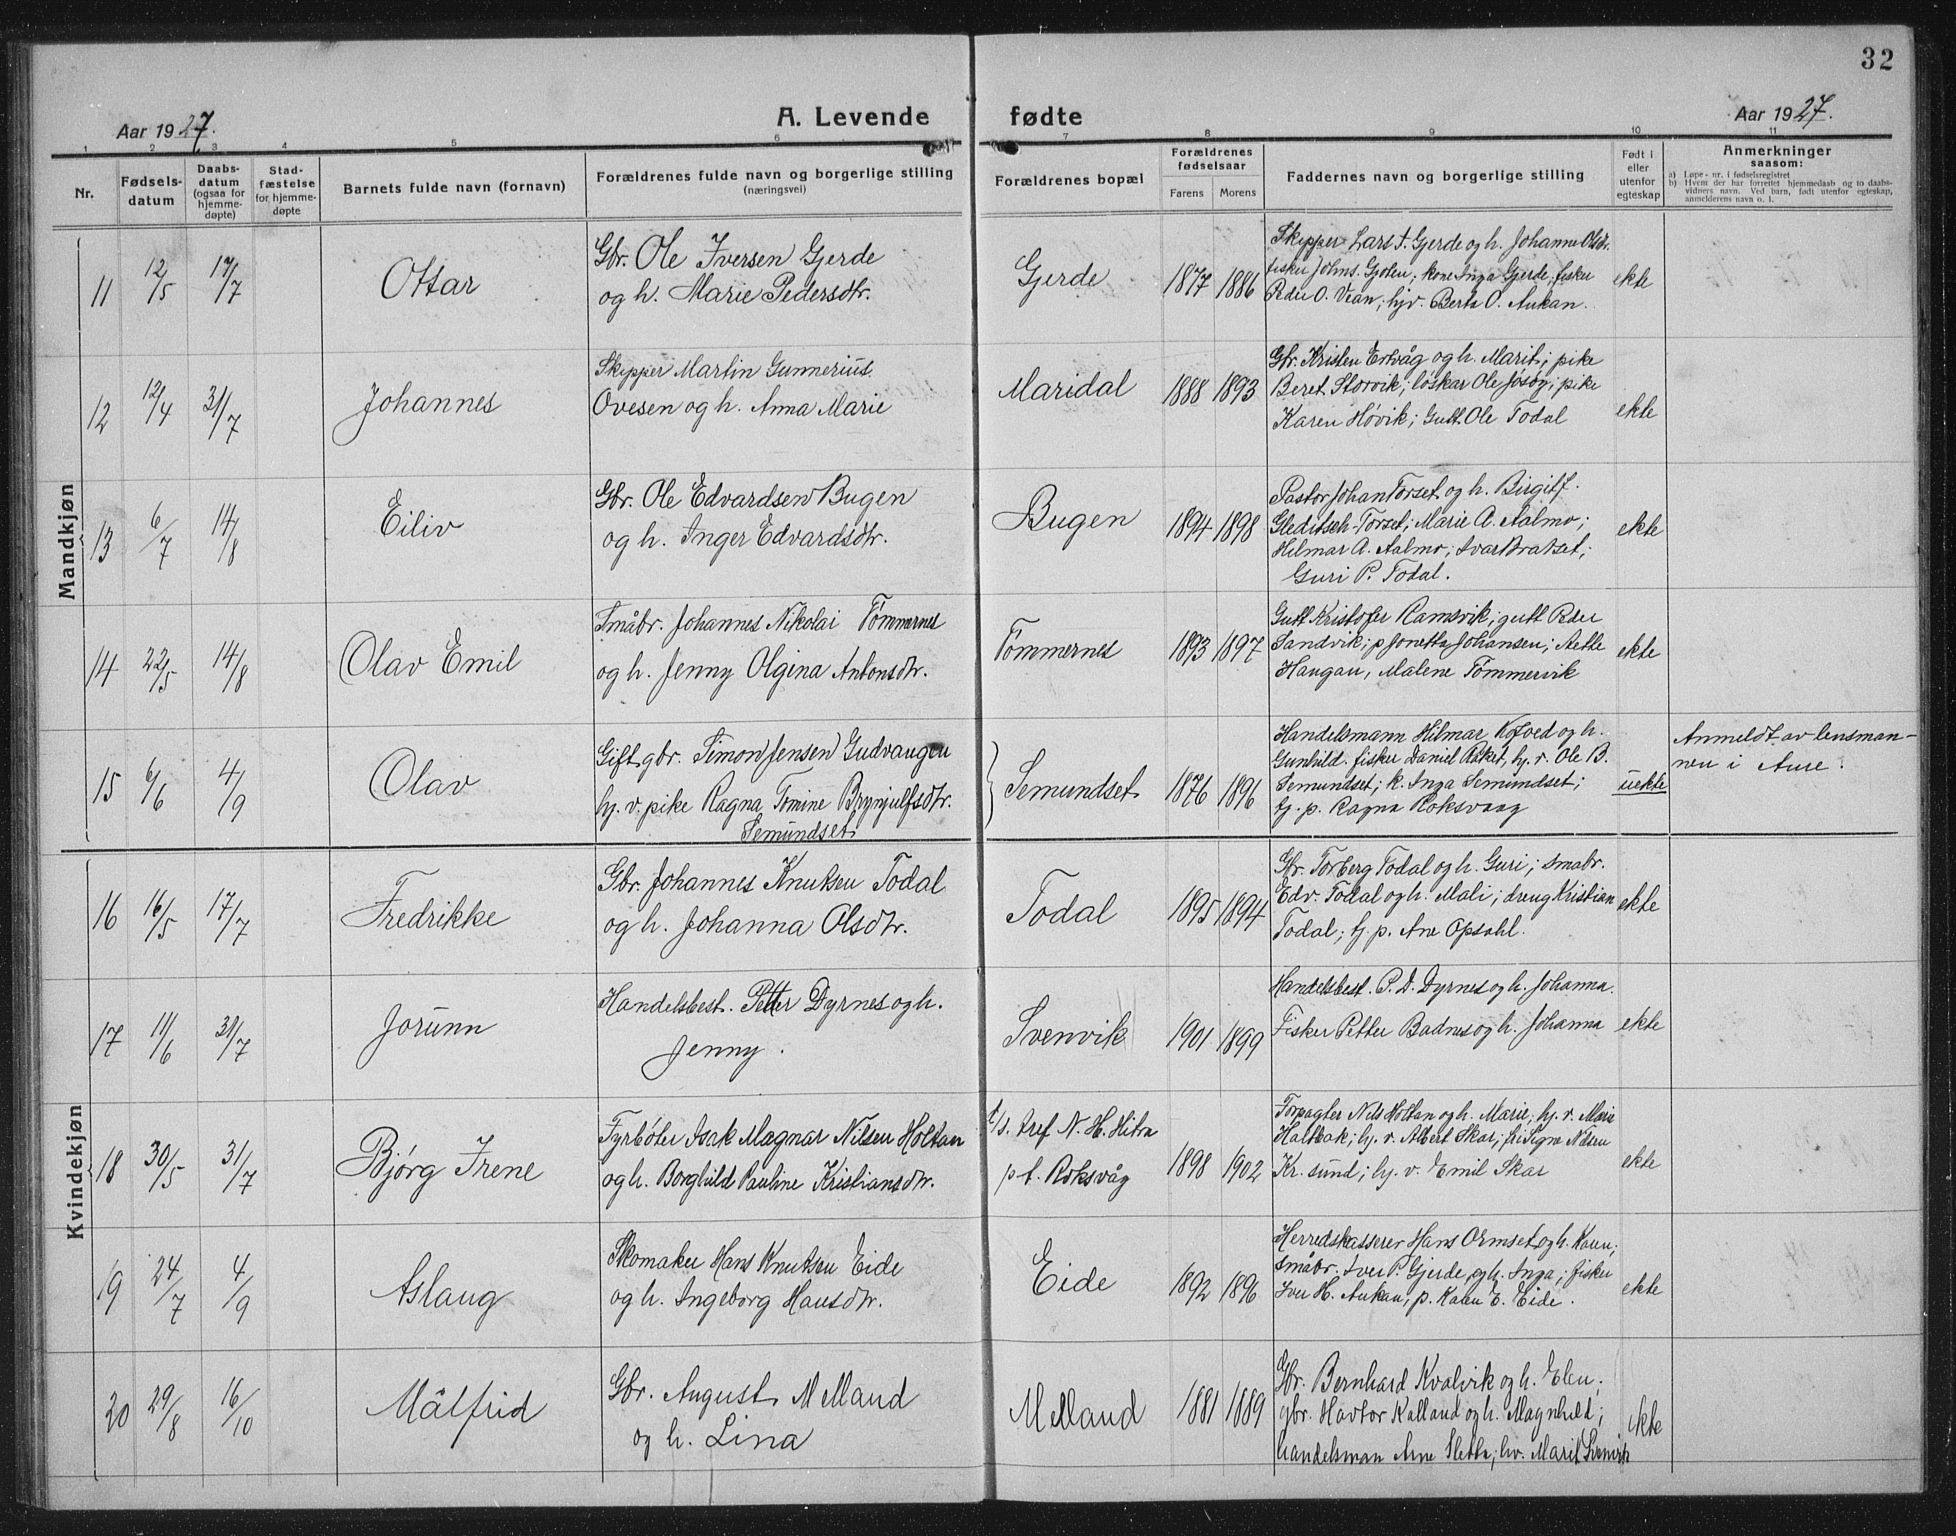 32
Aar 1927.
A. Levende
fødte
Aar 1927.
1 2 3 4 5 6 7 8 9 10 11
Nr.
Fødsels-
datum
Daabs-
datum
(ogsaa for
hjemme-
døpte)
Stad-
fæstelse
for hjemme-
døpte
Barnets fulde navn (fornavn)
Forældrenes fulde navn og borgerlige stilling
(næringsvei)
Forældrenes bopæl
Forældrenes
fødselsaar
Farens Morens
Faddernes navn og borgerlige stilling
Født i
eller
utenfor
egteskap
Anmerkninger
saasom:
a) Løpe-nr. i fødselsregistret
b) Hvem der har forrettet hjemmedaab og to daabs-
vidners navn. Ved barn, født utenfor egteskap,
anmelderens navn o. l.
Mandkjøn
11 12/5 17/7 Ottar
Gbr. Ole Iversen Gjerde
og h. Marie Pedersdtr.
Gjerde 1877 1886
Skipper Lars I. Gjerde og h. Johanne Olsdtr.
fisker Johns. Gjølen; kone Inga Gjerde, fisker
Peder O. Vean; hjv. Berta O. Aukan.
ekte
12 12/4 31/7 Johannes
Skipper Martin Gunnerius
Ovesen og h. Anna Marie
Maridal 1888 1893
Gbr. Kristen Ertvåg og h. Marit; pike
Beret Storvik; løskar Ole Jøsøy; pike
Karen Høvik; Gutt Ole Todal
ekte
13 6/7 14/8 Eiliv
Gbr. Ole Edvardsen Bugen
og h. Inger Edvardsdtr.
Bugen 1894 1898
Pastor Johan Torset og h. Birgit f.
Gleditsch-Torset; Marie A. Aalmo;
Hilmar A. Aalmo; Ivar Bratset;
Guri P. Todal.
ekte
14 22/5 14/8 Olav Emil
Småbr. Johannes Nikolai Tømmernes
og h. Jenny Olgina Antonsdtr.
Tømmernes 1893 1897
Gutt Kristofer Ramsvik; gutt Peder
Sandvik; p Jonetta Johansen; Aette
Haugan, Malene Tømmervik
ekte
15 6/6 4/9 Olav
Gift gbr. Simon Jensen Gudvangen
hj. v. pike Ragna Tomine Brynjulfsdtr.
Semundset
Semundset 1876 1896
Handelsmann Hilmar Kofoed og h.
Gunhild. fisker Daniel Raket, hj. v. Ole B.
Semundset; k. Inga Semundset;
hj. p. Ragna Roksvaag
uekte
Anmeldt av lensman-
nen i Aure.
Kvindekjøn
16 16/5 17/7 Fredrikke
Gbr. Johannes Knutsen Todal
og h. Johanna Olsdtr.
Todal 1895 1894
Gbr. Torberg Todal og h. Guri; småbr.
Edv. Todal og h. Mali; dreng Kristian
Todal; hj. p. Ane Opsahl.
ekte
17 11/6 31/7 Jorunn
Handelsbest. Petter Dyrnes og h.
Jenny.
Svenvik 1901 1899
Handelsbest. P. D. Dyrnes og h. Johanna.
Fisker Petter Badnes og h. Johanna
ekte
18 30/5 31/7 Bjørg Irene
Fyrbøter Isak Magnar Nilsen Holtan
og h. Borghild Pauline Kristiansdtr.
t/s. Aref N. H. Hitra
p t. Roksvåg
1898 1902
Forpagter Nils Holtan og h. Marie; hj. v. Marie
Haltbak; hj. v. Albert Skar; frk Signe Nilsen
Kr. sund; hj. v. Emil Skar
ekte
19 24/7 4/9 Aslaug
Skomaker Hans Knutsen Eide
og h. Ingeborg Hansdtr.
Eide 1892 1896
Herredskasserer Hans Ormset og h. Karen;
småbr. Iver P. Gjerde og h. Inga; fisker
Iver H. Aukan; p. Karen E. Eide.
ekte
20 29/8 16/10 Målfrid
Gbr. August Melland
og h. Lina
Melland 1881 1889
Gbr. Bernhard Kvalvik og h. Elen;
gbr. Havtor Kalland og h. Magnhild;
handelsman Arne Sletta; hv. Marit Svenvik
ekte